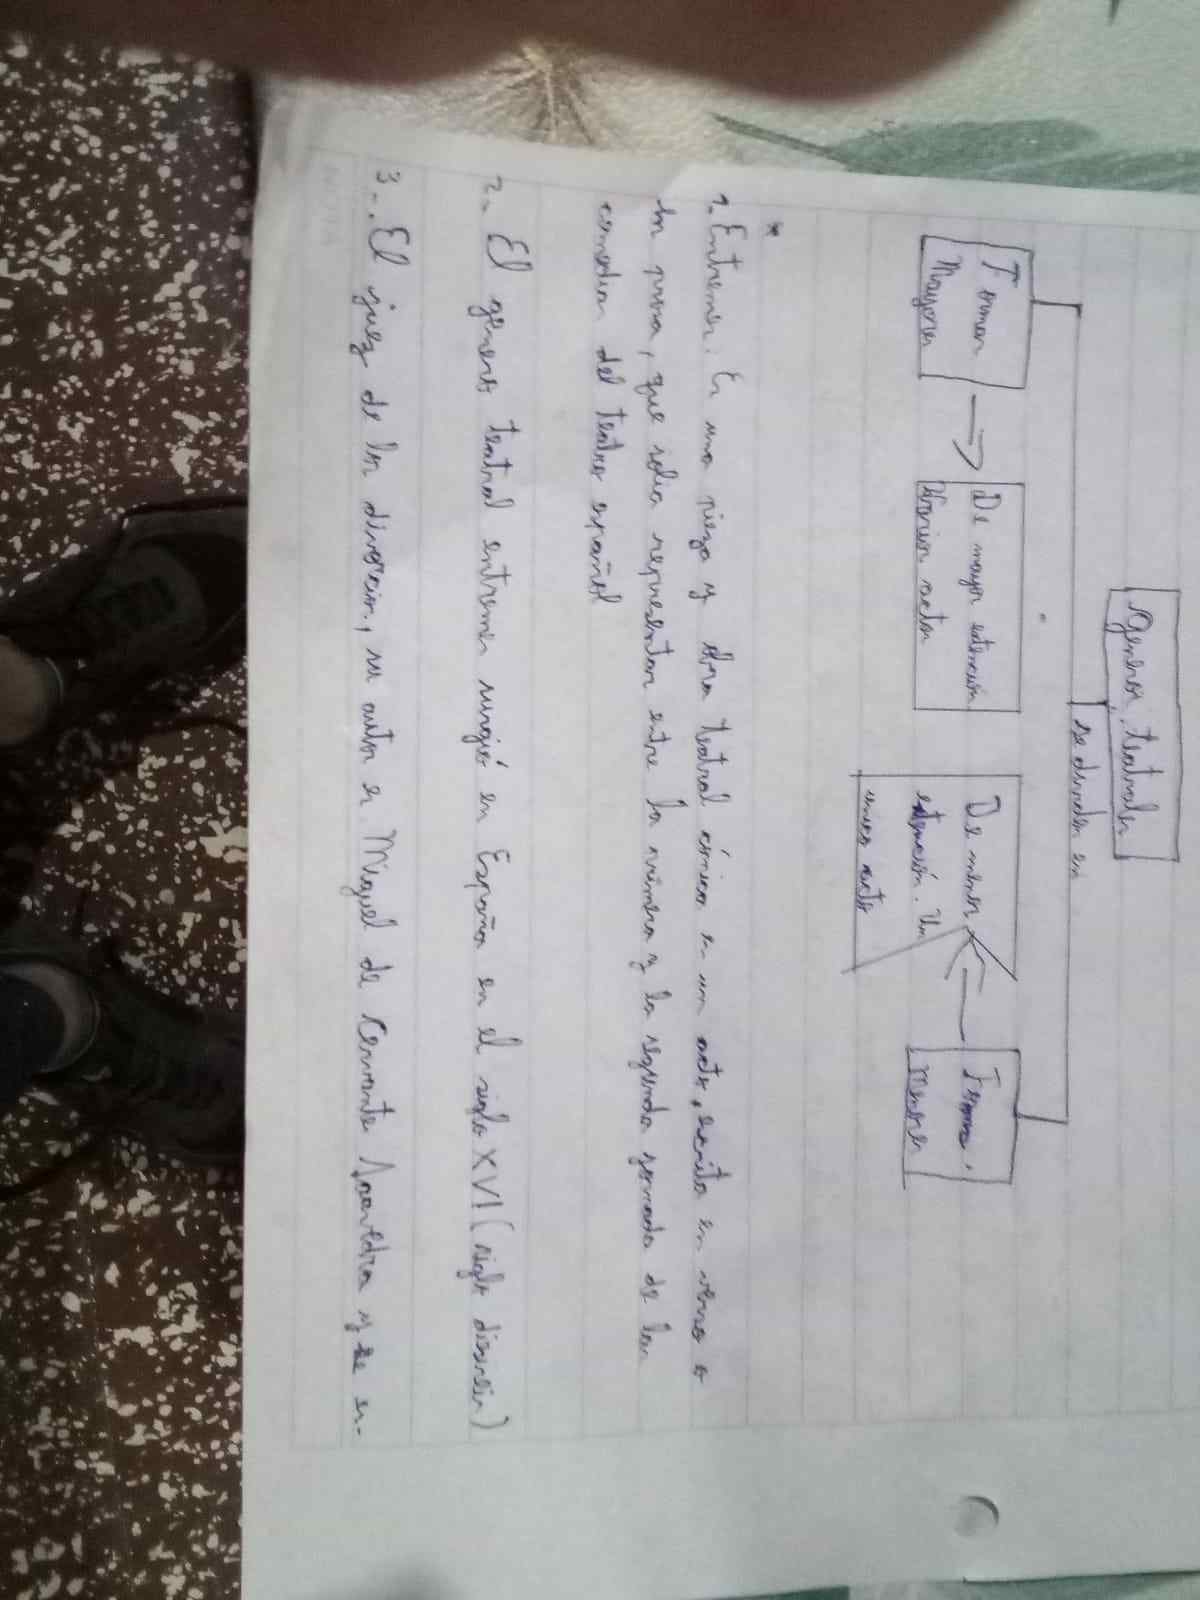 Generos teatrales
se dividen en
Formas
Mayores
De mayor extención
Varios actos
De menor
extención. Un
unico acto
Formas
Menores
*
1. Entremes: Es una pieza y obra teatral cómica en un acto, escrita en verso o
en prosa, que solia representar entre la primera y la segunda jornada de las
comedias del teatro español
2. El genero teatral entremes surgió en España en el siglo XVI (siglo dieseis)
3-. El juez de los divorcios, su autor es Miguel de Cervante Saavedra y se es-